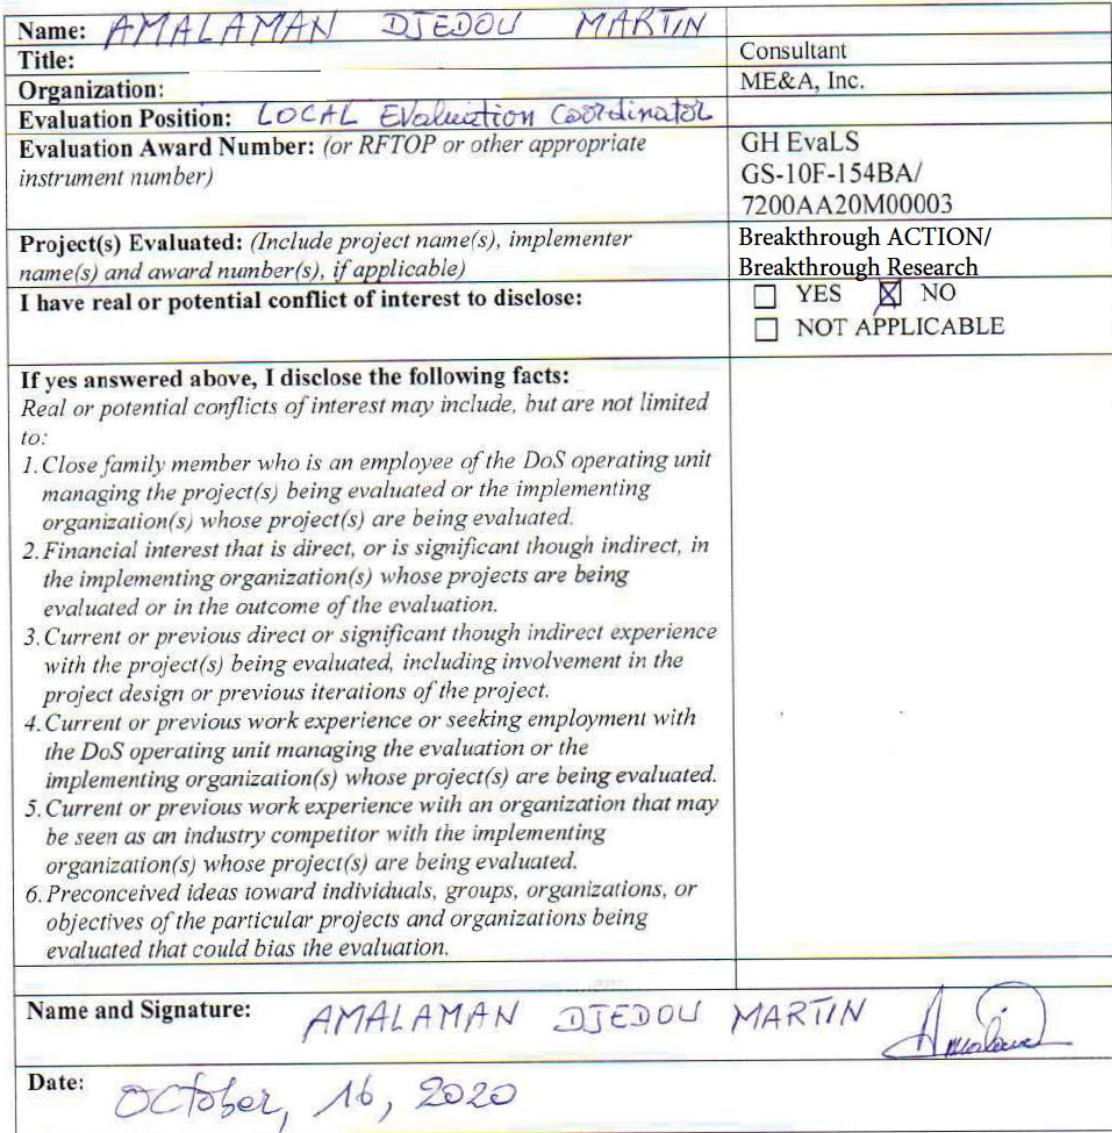 Name: AMALAMAN DJEDOU MARTIN
Title: Consultant
Organization: ME&A, Inc.
Evaluation Position: LOCAL Evaluation Coordinator
Evaluation Award Number: (or RFTOP or other appropriate
instrument number)
GH EvaLS
GS-10F-154BA/
7200AA20M00003
Project(s) Evaluated: (Include project name(s), implementer
name(s) and award number(s), if applicable)
Breakthrough ACTION/
Breakthrough Research
I have real or potential conflict of interest to disclose:
☐ YES ☒ NO
☐ NOT APPLICABLE
If yes answered above, I disclose the following facts:
Real or potential conflicts of interest may include, but are not limited
to:
1. Close family member who is an employee of the DoS operating unit
managing the project(s) being evaluated or the implementing
organization(s) whose project(s) are being evaluated.
2. Financial interest that is direct, or is significant though indirect, in
the implementing organization(s) whose projects are being
evaluated or in the outcome of the evaluation.
3. Current or previous direct or significant though indirect experience
with the project(s) being evaluated, including involvement in the
project design or previous iterations of the project.
4. Current or previous work experience or seeking employment with
the DoS operating unit managing the evaluation or the
implementing organization(s) whose project(s) are being evaluated.
5. Current or previous work experience with an organization that may
be seen as an industry competitor with the implementing
organization(s) whose project(s) are being evaluated.
6. Preconceived ideas toward individuals, groups, organizations, or
objectives of the particular projects and organizations being
evaluated that could bias the evaluation.
Name and Signature: AMALAMAN DJEDOU MARTIN
Date: October, 16, 2020